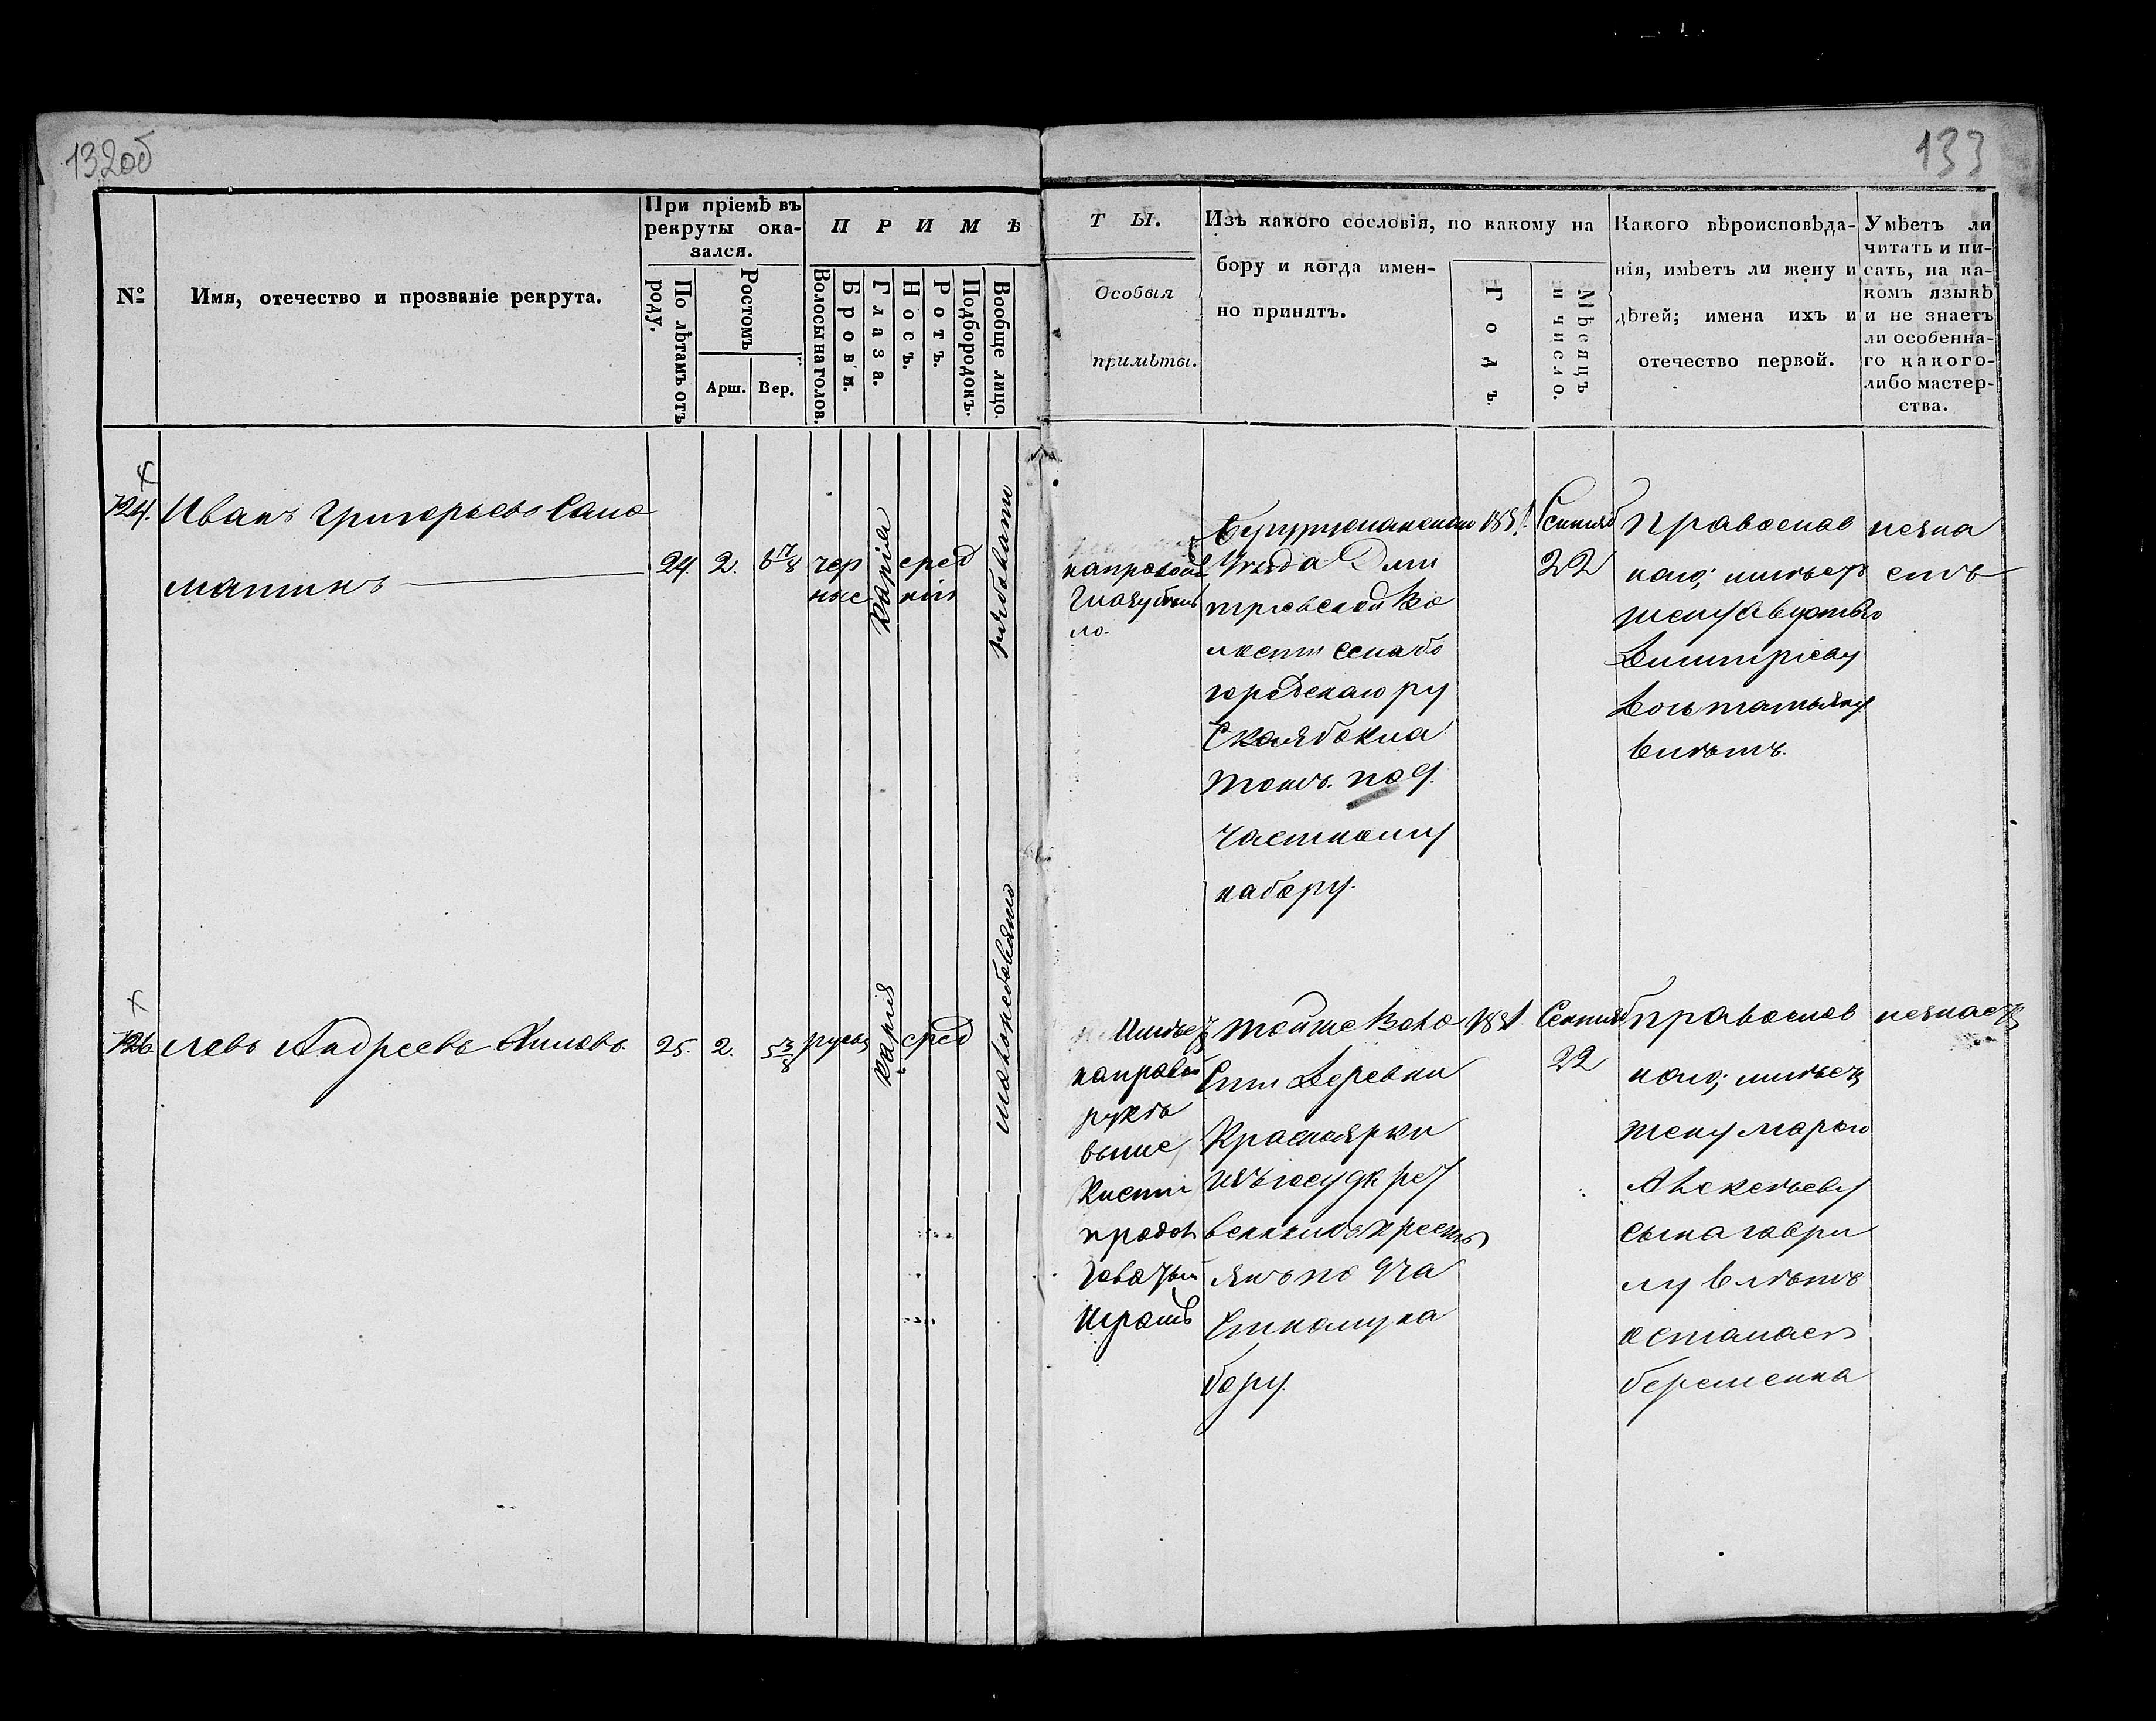 132об
133
№
Имя, отечество и прозваніе рекрута.
При пріемѣ въ
рекруты ока-
зался.
По лѣтамъ отъ
роду.
Ростомъ
Арш.
Вер.
ПРИМѢ
Волосы на голов.
Брови.
Глаза.
Носъ.
Ротъ.
Подбородокъ.
Вообще лицо.
ТЫ.
Особыя
примѣты.
Изъ какого сословія, по какому на
бору и когда имен-
но принятъ.
Годъ.
Мѣсяцъ
и число.
Какого вѣроисповѣда-
нія, имѣетъ ли жену и
дѣтей; имена ихъ и
отечество первой.
Умѣетъ ли
читать и пи-
сать, на ка-
комъ языкѣ
и не знаетъ
ли особенна-
го какого-
либо мастер-
ства.
724.
Иванъ Григорьевъ Сама
ткинъ
24.
2.
6 7/8
чер
ные
карія
сред
ній
рябовато
на правой
глазу бель
мо.
Бугурусланскаго
Уѣзда Дми
тріевской Во
лости
городскаго
по 9.
частному
набору.
1851
Сентяб
22
Православ
наго; имѣетъ
жену Авдотью
Димитріеву
дочь татьяну
6 лѣтъ.
незна
етъ
726.
Левъ Андреевъ
25.
2.
5 3/8
русыя
карія
сред
Имѣетъ
на правой
рукѣ
выше
Кисти
продол
говатый
шрамъ
той же Воло
сти Деревни
Красноярки
изъ государ
ственныхъ кресть
янъ по 9 ча
стному на
бору.
1851
Сентяб
22
православ
наго; имѣетъ
жену Марью
Алексѣеву
сына гаври
лу
осталась
беременна
незнаетъ